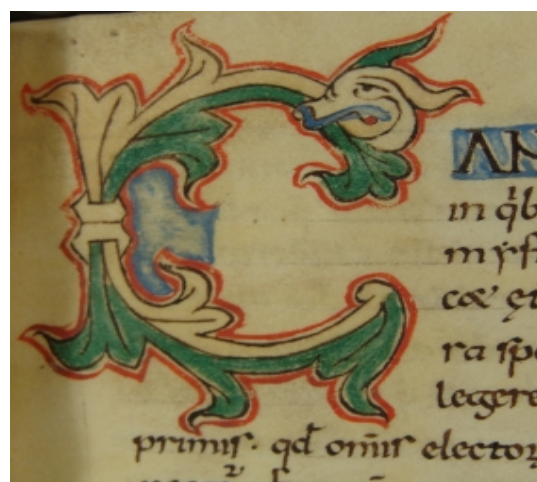 C AN
in q̇b
myſt
coe et
ra ſpe
legere
primiſ. qd̄ om̄iſ elector